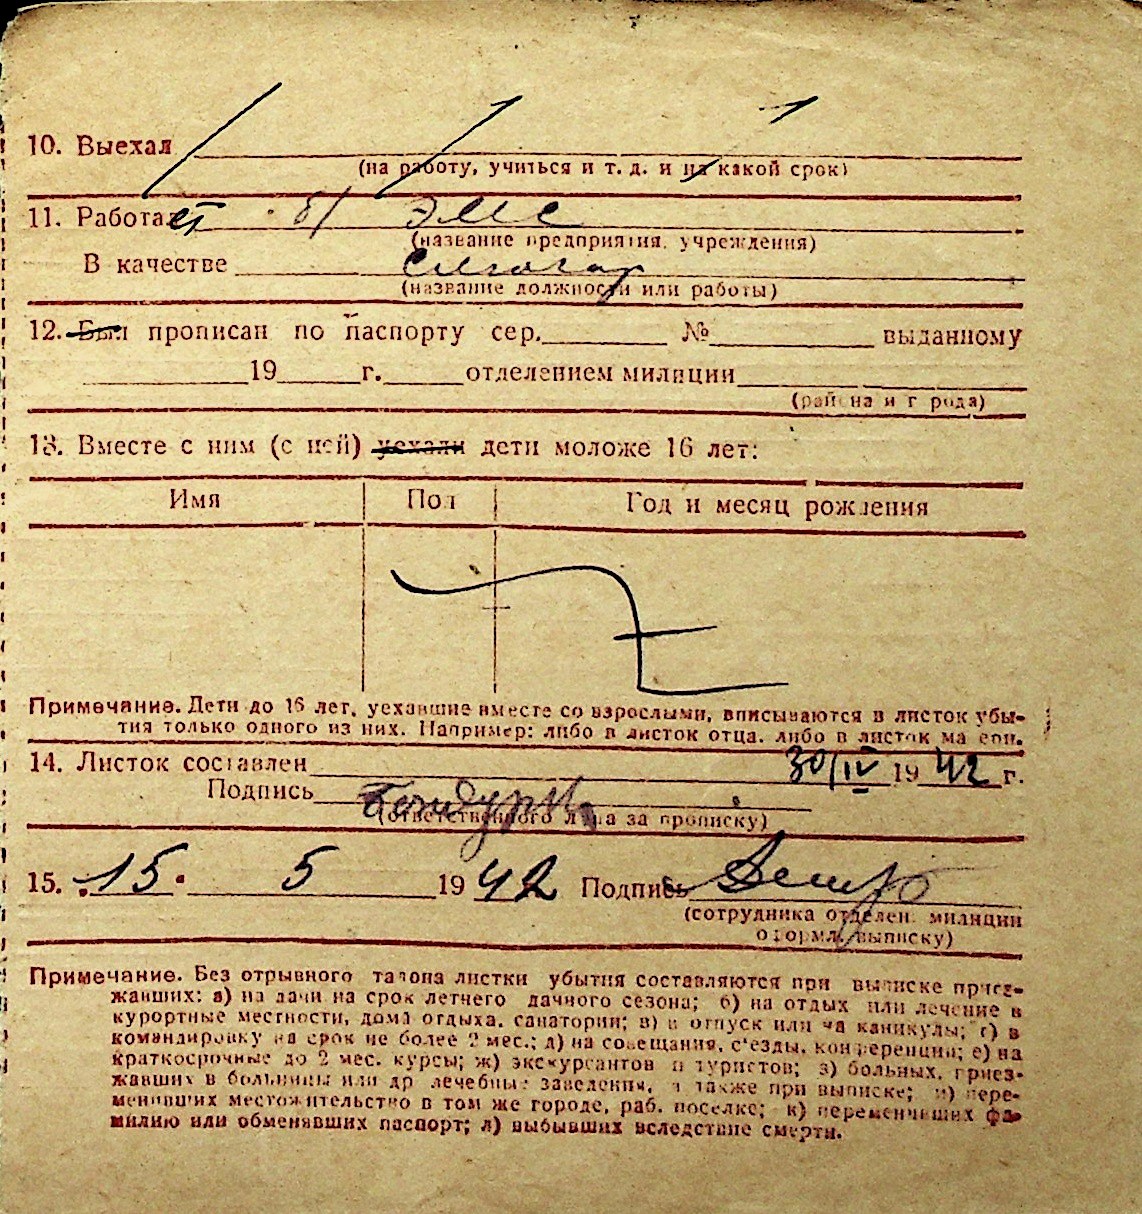 10. Выехал
(на работу, учиться и т. д. и на какой срок)
11. Работает ЭМС
(название предприятия, учреждения)
В качестве
(название должности или работы)
12. Был прописан по паспорту сер. № выданному
19 г. отделением милиции
(района и города)
13. Вместе с ним (с ней) уехали дети моложе 16 лет:
Имя Пол Год и месяц рождения
Примечание. Дети до 16 лет, уехавшие вместе со взрослыми, вписываются в листок убы-
тия только одного из них. Например: либо в листок отца, либо в листок матери.
14. Листок составлен 30/IV 1942 г.
Подпись
(ответственного лица за прописку)
15. 15. 5 1942 Подпись
(сотрудника отделен. милиции
оформл. выписку)
Примечание. Без отрывного талона листки убытия составляются при выписке приез-
жавших: а) на дачи на срок летнего дачного сезона; б) на отдых или лечение в
курортные местности, дома отдыха, санатории; в) в отпуск или на каникулы; г) в
командировку на срок не более 2 мес.; д) на совещания, съезды, конференции; е) на
краткосрочные до 2 мес. курсы; ж) экскурсантов и туристов; з) больных, приез-
жавших в больницы или др лечебные заведения, а также при выписке; и) пере-
менивших местожительство в том же городе, раб. поселке; к) переменивших фа-
милию или обменявших паспорт; л) выбывших вследствие смерти.